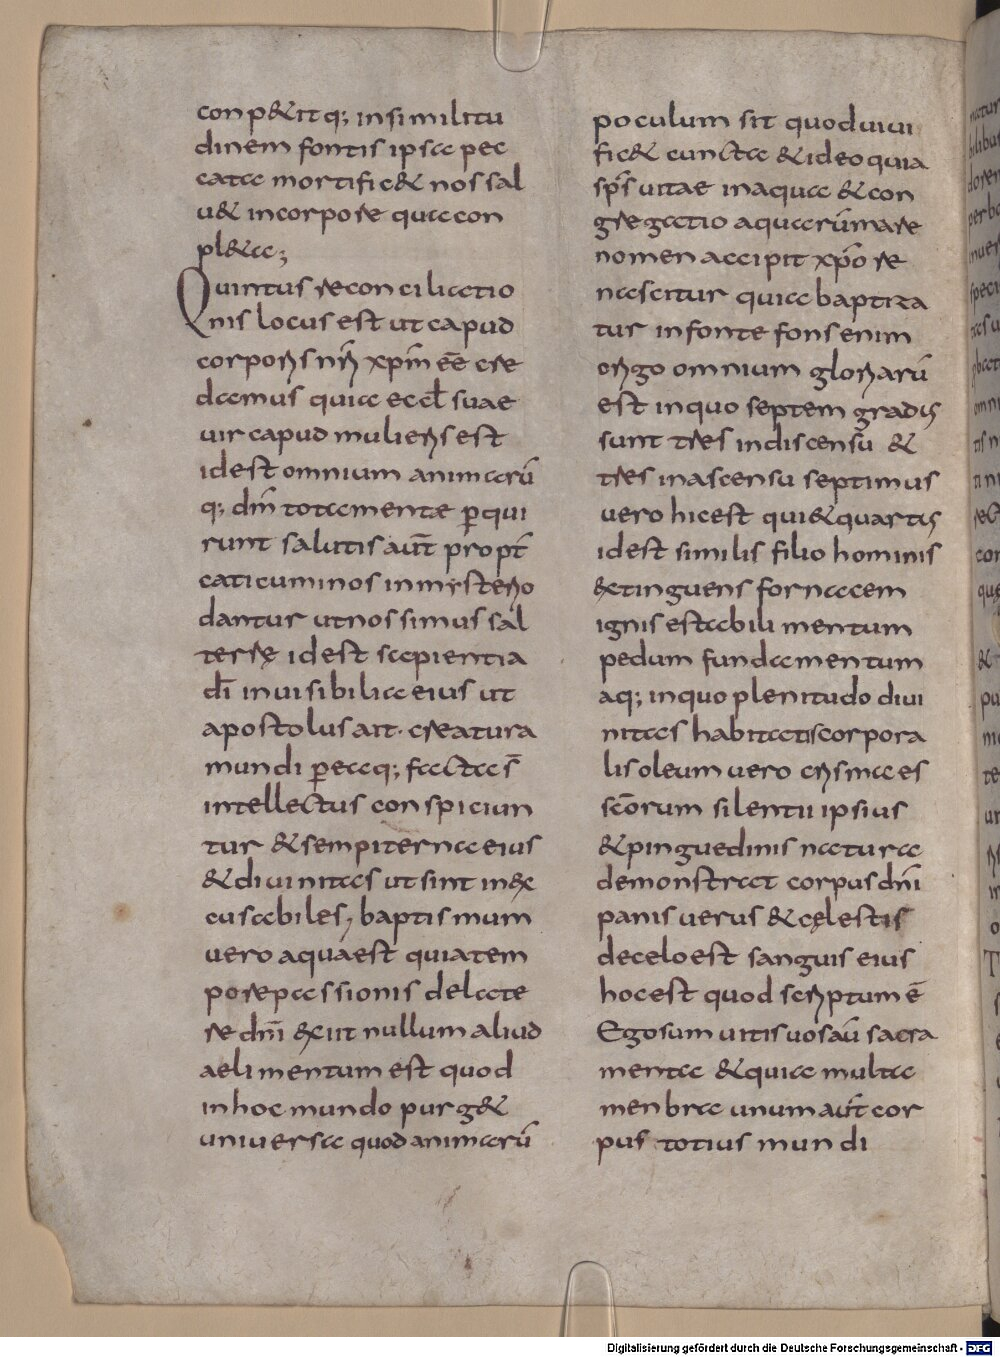 conp&itq; insimilitu
dinem fontis ipsa pec
cata mortific& nos sal
u& incorpore qua con
pl&a;
Quintus reconciliatio
nis locus est ut capud
corporis nr̄i xp̄m ēē cre
damus quia eccl̄ suae
uir capud mulieris est
id est omnium animarū
q; dm̄ tota mente p̱qui
runt salutis aut̄ propt̄
caticuminos in mysterio
dantur ut nos simus sal
terrę id est sapientia
dī inuisibilia eius ut
apostolus ait· creatura
mundi p̱ eaq; facta s̄
intellectus conspiciun
tur & sempiterna eius
& diuinitas ut sint inex
cusabiles; baptismum
uero aqua est quia tem
pore passionis de late
re dn̄i exiit nullum aliud
aelimentum est quod
in hoc mundo purg&
uniuersa quod animarū
poculum sit quod uiui
fic& cuncta & ideo quia
sp̄s uitae in aqua & con
gregatio aquarū mare
nomen accipit xp̄o re
nascitur quia baptiza
tur in fonte fons enim
origo omnium gloriarū
est in quo septem gradis
sunt tres in discensu &
tres in ascensu septimus
uero hic est qui & quartis
id est similis filio hominis
extinguens fornacem
ignis estabilimentum
pedum fundamentum
aq; in quo plenitudo diui
nitas habitatis corpora
lis oleum uero crismaes
scōrum silentii ipsius
& pinguedinis natura
demonstrat corpus dn̄i
panis uerus & cęlestis
de celo est sanguis eius
hoc est quod scriptum ē
Ego sum uitis uos aū sacra
menta & quia multa
menbra unum aut̄ cor
pus totius mundi
Digitalisierung gefördert durch die Deutsche Forschungsgemeinschaft - DFG